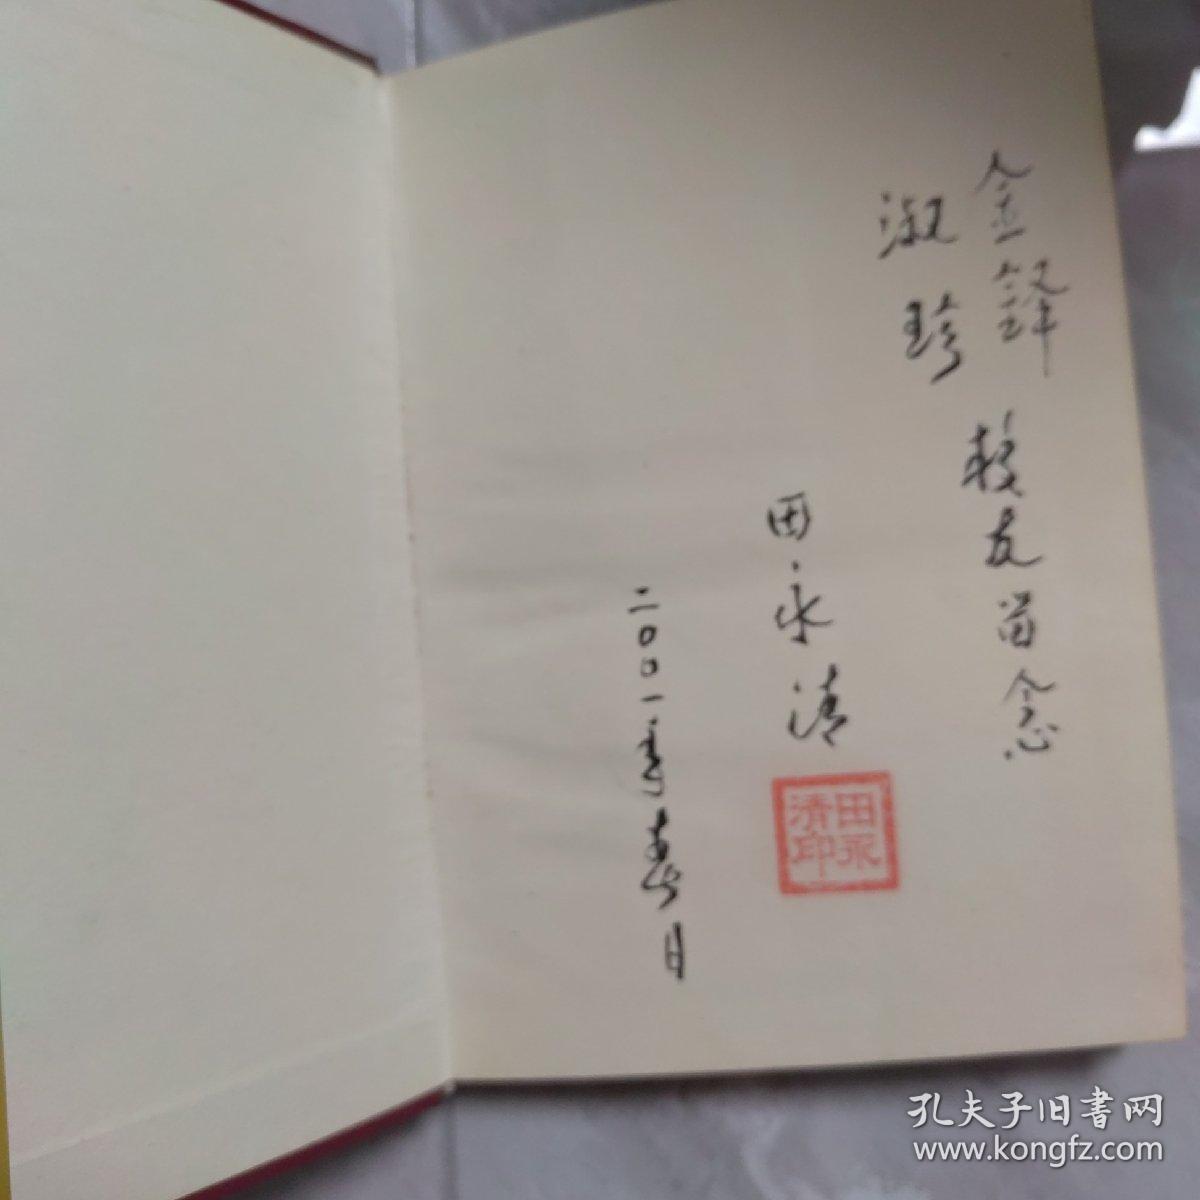 金鋒
淑珍
校友留念
田永清
二〇〇一年春月
田永
清印
孔夫子旧書网
www.kongfz.com